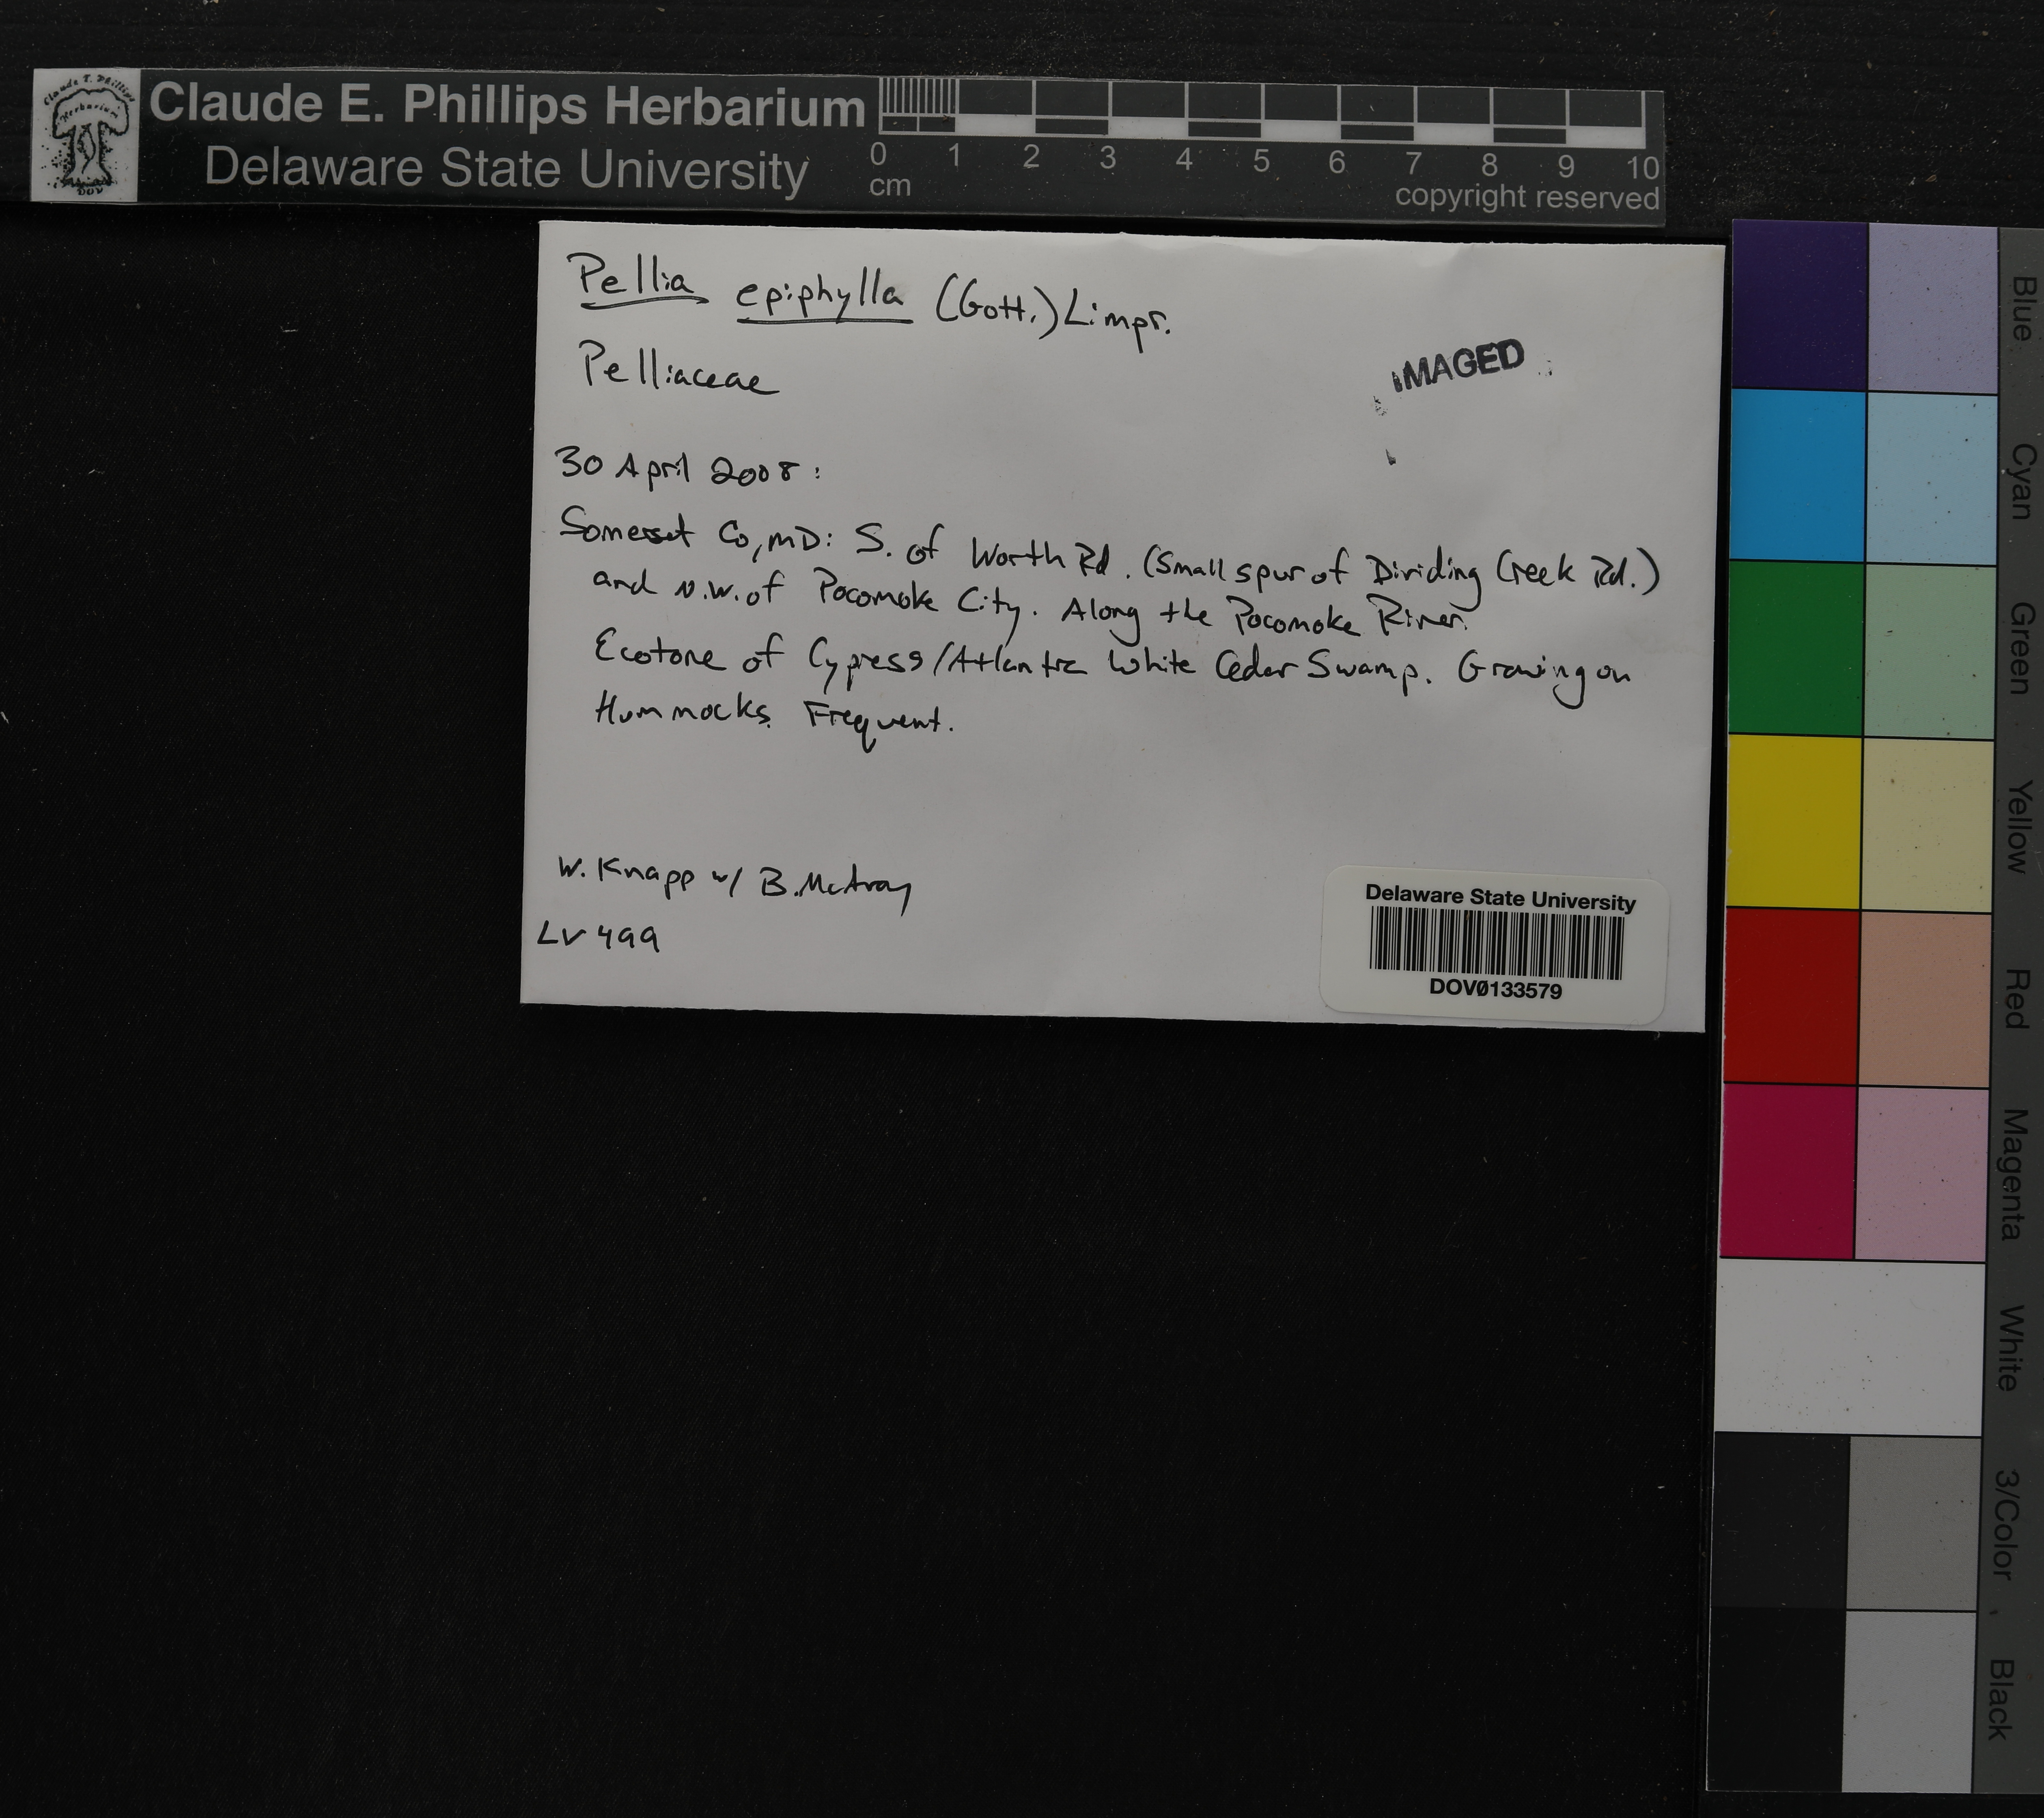 Claude E. Phillips Herbarium
Delaware State University
0 1 2 3 4 5 6 7 8 9 10
cm
copyright reserved
Claude E. Phillips
Herbarium
DOV
Pellia epiphylla (Gott.) Limpr.
Pelliaceae
IMAGED
30 April 2008:
Somerset Co, MD: S. of Worth Rd. (Small spur of Dividing Creek Rd.)
and N.W. of Pocomoke City. Along the Pocomoke River.
Ecotone of Cypress/Atlantic White Cedar Swamp. Growing on
Hummocks. Frequent.
W. Knapp w/ B. McAvoy
LV 499
Delaware State University
DOV0133579
Blue
Cyan
Green
Yellow
Red
Magenta
White
3/Color
Black